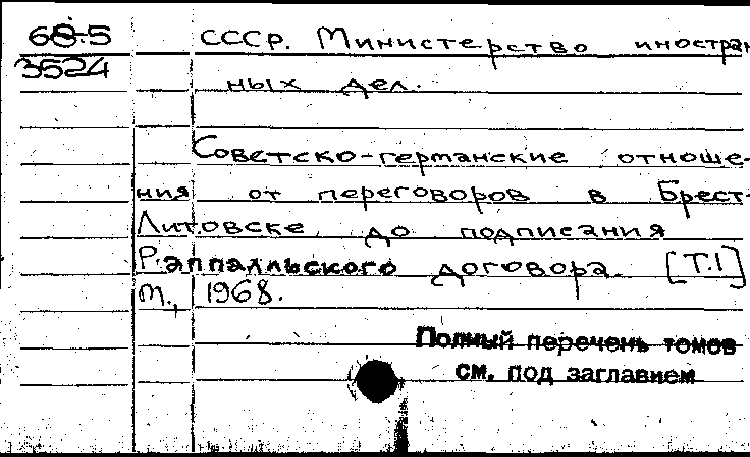 68-5 СССР. Министерство иностран
3524
ных дел.
Советско-германские отноше-
ния от переговоров в Брест-
Литовске до подписания
Раппалльского договора. [Т.1]
М., 1968.
Полный перечень томов
см. под заглавием